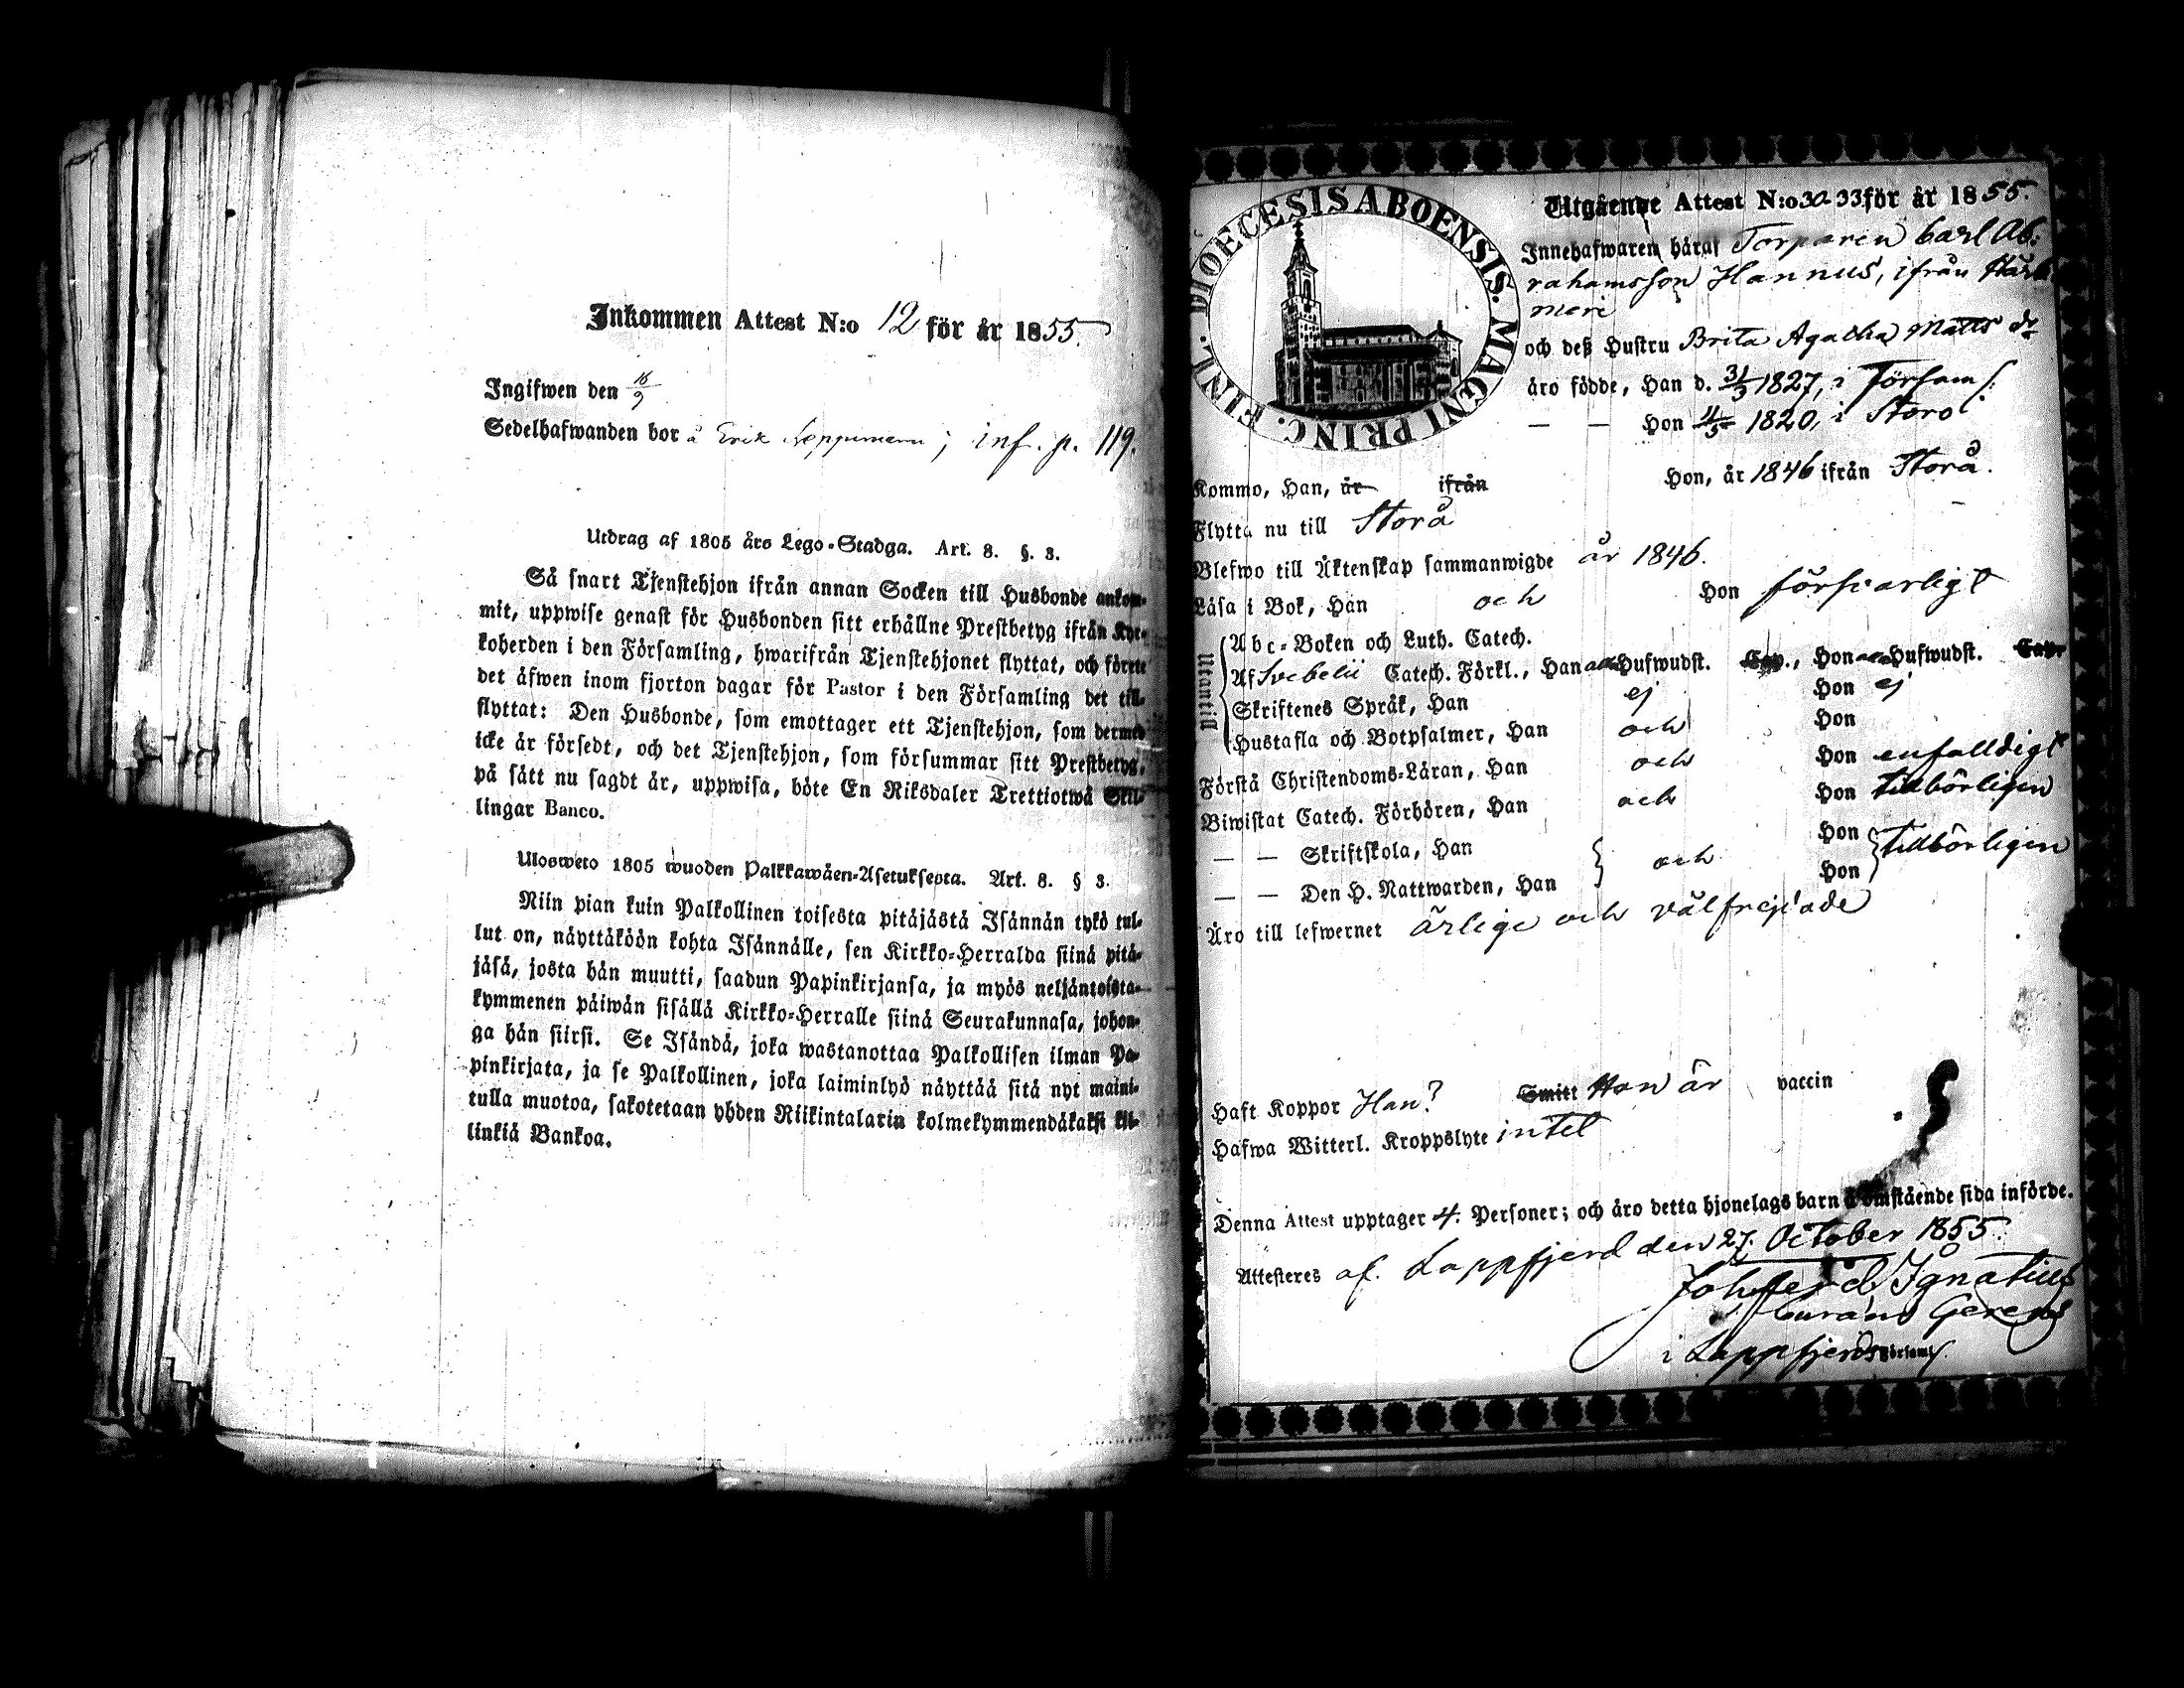 Inkommen Attest N:o 12 för år 1855.
Ingifwen den 16/9
Sedelhafwanden bor å Erik Leppimann; inf. p. 119.
Utdrag af 1805 års Lego-Stadga. Art. 8. §. 3.
Så snart Tjenstehjon ifrån annan Socken till Husbonde ankom-
mit, uppwise genast för Husbonden sitt erhållne Prestbetyg ifrån Kyr-
koherden i den Församling, hwarifrån Tjenstehjonet flyttat, och förete
det äfwen inom fjorton dagar för Pastor i den Församling det till-
flyttat: Den Husbonde, som emottager ett Tjenstehjon, som dermed
icke är försedt, och det Tjenstehjon, som försummar sitt Prestbetyg,
på sätt nu sagdt är, uppwisa, böte En Riksdaler Trettiotwå Skil-
lingar Banco.
Ulosweto 1805 wuoden Palkkawäen-Asetuksesta. Art. 8. § 3.
Niin pian kuin Palkollinen toisesta pitäjästä Isännän tykö tul-
lut on, näyttäköön kohta Isännälle, sen Kirkko-Herralda siinä pitä-
jäsä, josta hän muutti, saadun Papinkirjansa, ja myös neljäntoista-
kymmenen päiwän sisällä Kirkko-Herralle siinä Seurakunnasa, johon-
ga hän siirsi. Se Isändä, joka wastanottaa Palkollisen ilman Pa-
pinkirjata, ja se Palkollinen, joka laiminlyö näyttää sitä nyt maini-
tulla muotoa, sakotetaan yhden Riikintalarin kolmekymmendäkaksi kil-
linkiä Bankoa.
DIOECESIS ABOENSIS. MAGNI PRINC. FINL.
Utgående Attest N:o 32 33 för år 1855.
Innehafwaren häraf Torparen Carl Ab-
rahamsson Hannus, ifrån Härk
meri
och deß Hustru Brita Agatha Matts dr
äro födde, Han d. 31/3 1827, i Församl:
— — Hon 4/5 1820, i Storå
Kommo, Han, år ifrån Hon, år 1846 ifrån Storå.
Flytta nu till Storå
Blefwo till Äktenskap sammanwigde år 1846.
Läsa i Bok, Han och Hon försvarligt
Utantill
Abc-Boken och Luth. Catech.
Af Svebelii Catech. Förkl., Han Hufwudst. Cap., Hon Hufwudst. Cap.
Skriftenes Språk, Han ej Hon ej
Hustafla och Botpsalmer, Han och Hon
Förstå Christendoms-Läran, Han och Hon enfalldigt
Biwistat Catech. Förhören, Han och Hon tillbörligen
— — Skriftskola, Han och Hon tillbörligen
— — Den H. Nattwarden, Han Hon
Äro till lefwernet ärlige och välfrejdade
Haft Koppor Han? Smitt Hon är vaccin
Hafwa Witterl. Kroppslyte intet
Denna Attest upptager 4. Personer; och äro detta hjonelags barn å omstående sida införde.
Attesteres af. Lappfjerd den 27. October 1855.
Joh. Ferd. Ignatius
Curam Gerens
i Lappfjerds Församl.